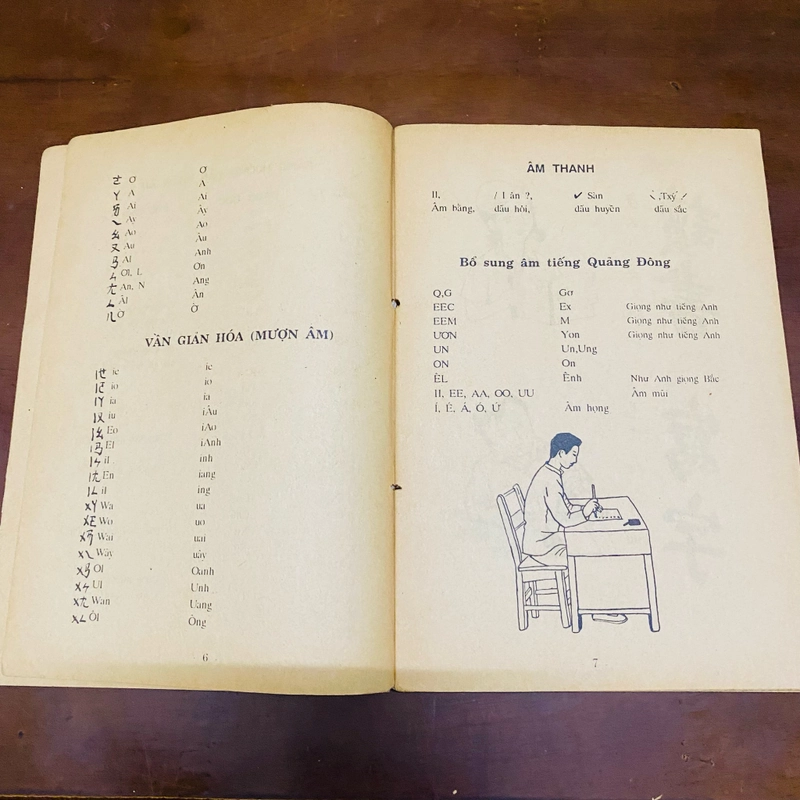 ㄜ Ơ Ơ
ㄚ A A
ㄞ Ai Ai
ㄟ Ay Ây
ㄠ Ao Ao
ㄡ Âu Âu
ㄢ Al Anh
ㄣ Ơl, L Ơn
ㄤ An, N Ang
ㄥ Âl Ân
ㄦ Ơ Ờ
VẦN GIẢN HÓA (MƯỢN ÂM)
ㄧㄝ ie ie
io io
ㄧㄚ ia ia
ㄧㄡ iu iÂu
ㄧㄠ Eo iAo
ㄧㄢ El iAnh
ㄧㄣ il inh
ㄧㄤ En iang
ㄧㄥ il ing
ㄨㄚ Wa ua
Wo uo
ㄨㄞ Wai uai
ㄨㄟ Wây uây
ㄨㄢ Ol Oanh
ㄨㄣ Ul Unh
ㄨㄤ Wan Uang
ㄨㄥ Ôl Ông
6
ÂM THANH
II, / I án ?, ✔ Sàn Txý
Âm bằng, dấu hỏi, dấu huyền dấu sắc
Bổ sung âm tiếng Quảng Đông
Q,G Gơ
EEC Ex Giọng như tiếng Anh
EEM M Giọng như tiếng Anh
ƯƠN Yon Giọng như tiếng Anh
UN Un,Ung
ON On
ÈL Ênh Như Anh giọng Bắc
II, EE, AA, OO, UU Âm mũi
Í, É, Á, Ó, Ứ Âm họng
7